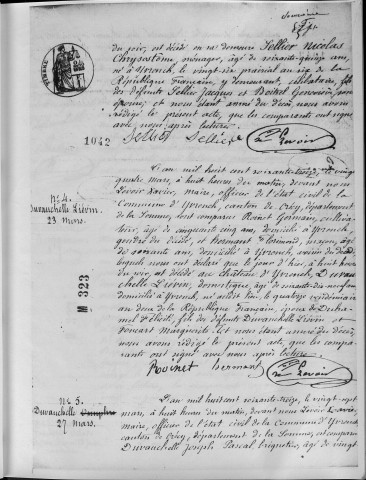 du soir, est décédé en sa demeure Sellier Nicolas
Chrysostôme, ménager, âgé de soixante-quinze ans,
né à Yvrench, le vingt-six prairial an six de la
République Française, y demeurant, célibataire, fils
des défunts Sellier Jacques et Boitel Geneviève, son
épouse; et nous étant assuré du décès, nous avons
rédigé le présent acte, que les comparants ont signé
avec nous après lecture.
1042
Sellier
N° 4.
Duvauchelle Liévin
23 Mars.
L'an mil huit cent soixante-treize, le vingt
quatre mars, à huit heures du matin, devant nous
Levoir Xavier, maire, officier de l'état civil de la
Commune d'Yvrench, canton de Crécy, département
de la Somme, sont comparus Roinet Germain, cultiva-
teur, âgé de cinquante cinq ans, domicilié à Yvrench,
gendre du décédé, et Hermant Florimond, maçon, âgé
de soixante ans, domicilié à Yvrench, voisin du décédé
lesquels nous ont déclaré que le jour d'hier, à huit heures
du soir, est décédé au Château d'Yvrench, Duvau-
chelle Liévin, domestique, âgé de soixante-dix-neuf ans
domicilié à Yvrench, né audit lieu, le quatorze vendémiaire
an deux de la République Française, époux de Duha-
mel Félicité, fils des défunts Duvauchelle Liévin et
Marguerite. Et nous étant assuré du décès,
nous avons rédigé le présent acte, que les compa-
rants ont signé avec nous après lecture.
M 323
Roinet Hermant Levoir
N° 5.
Duvauchelle
27 mars.
L'an mil huit cent soixante-treize, le vingt-sept
mars, à huit heures du matin, devant nous Levoir Xavier
maire, officier de l'état civil de la Commune d'Yvrench
canton de Crécy, département de la Somme, est comparu
Duvauchelle Joseph Pascal, briquetier, âgé de vingt